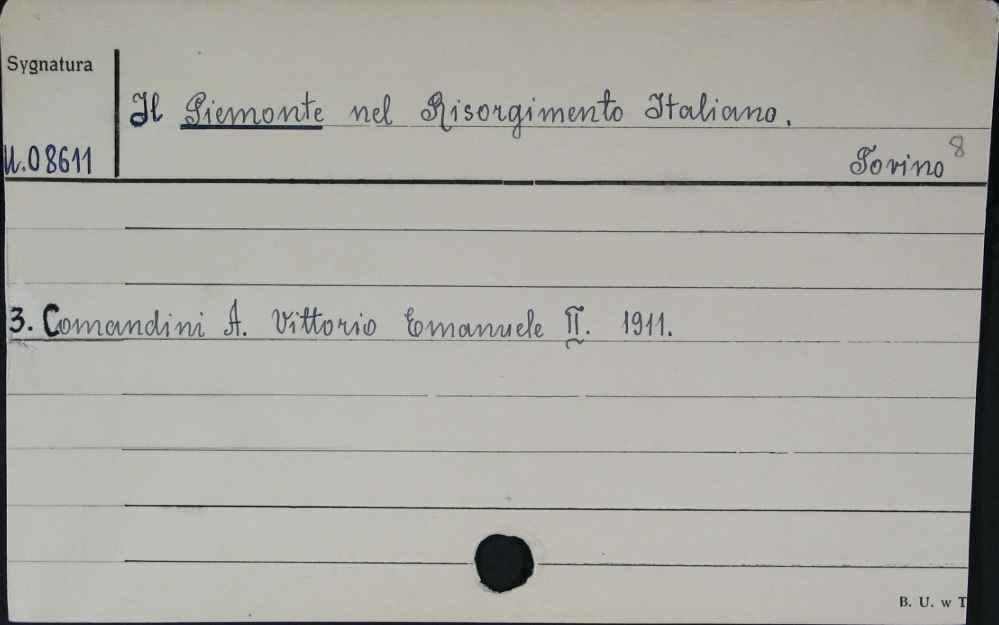 Sygnatura
Il Piemonte nel Risorgimento Italiano.
U.08611
Torino 8
3. Comandini A. Vittorio Emanuele II. 1911.
B. U. w T